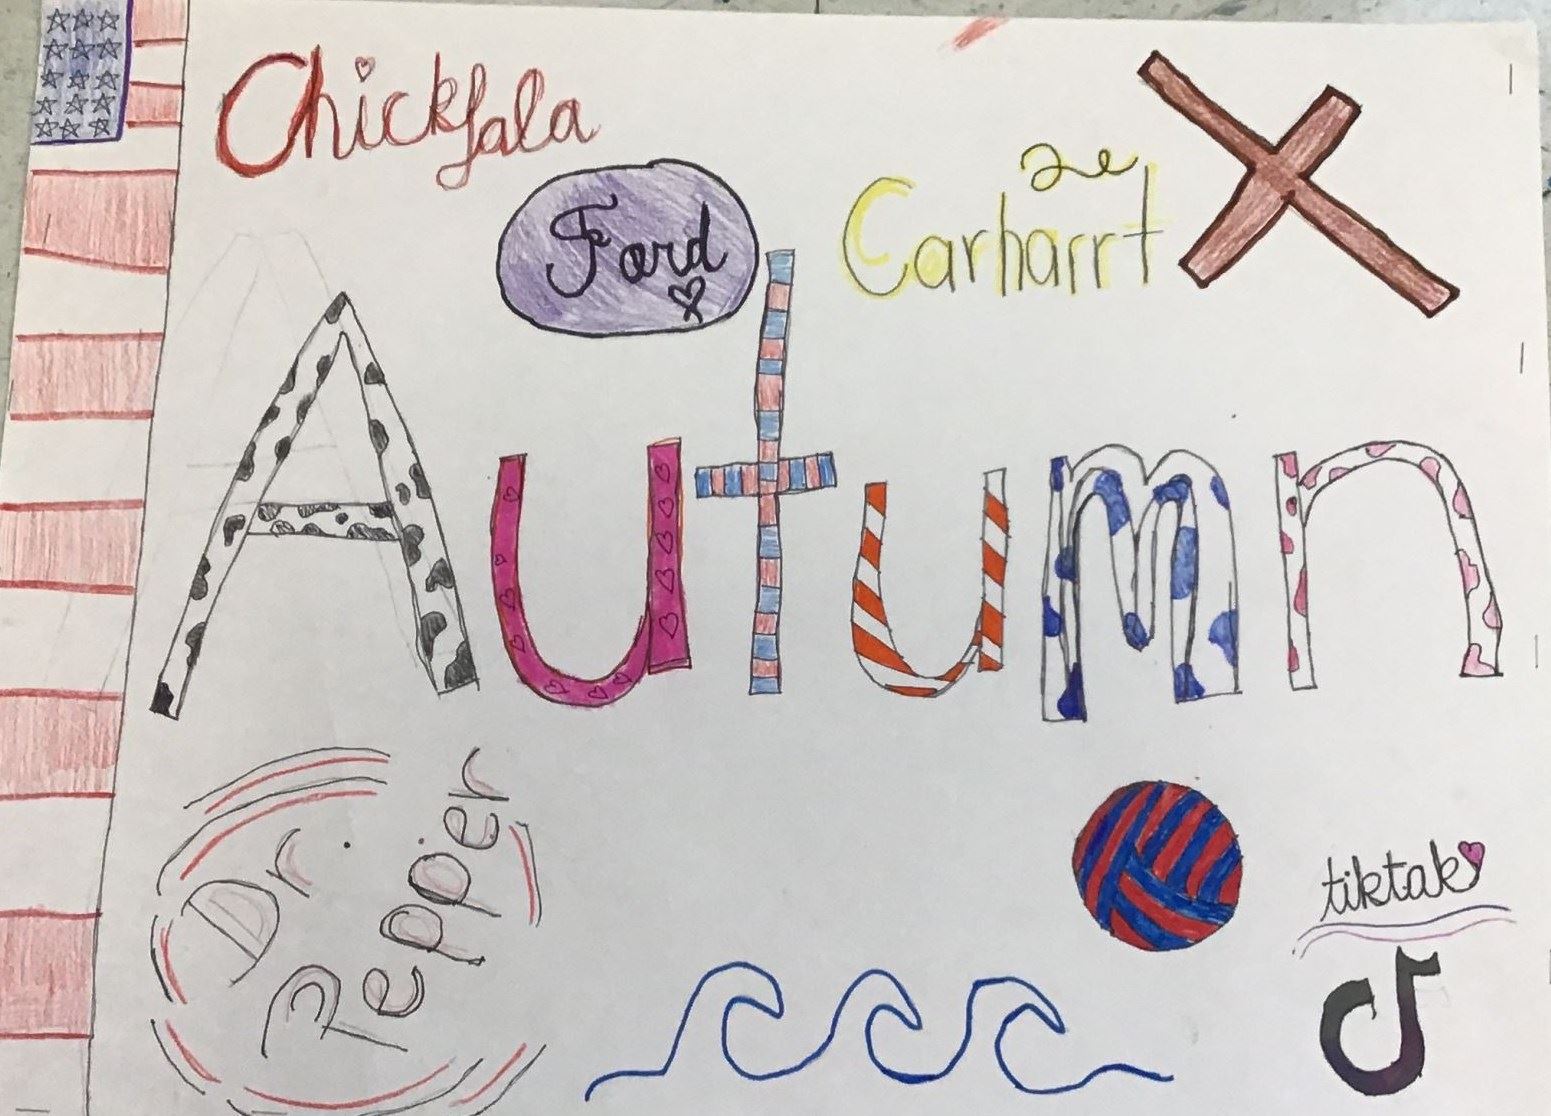 Chickfala
Ford
Carharrt
Autumn
Dr.
Pepper
tiktak